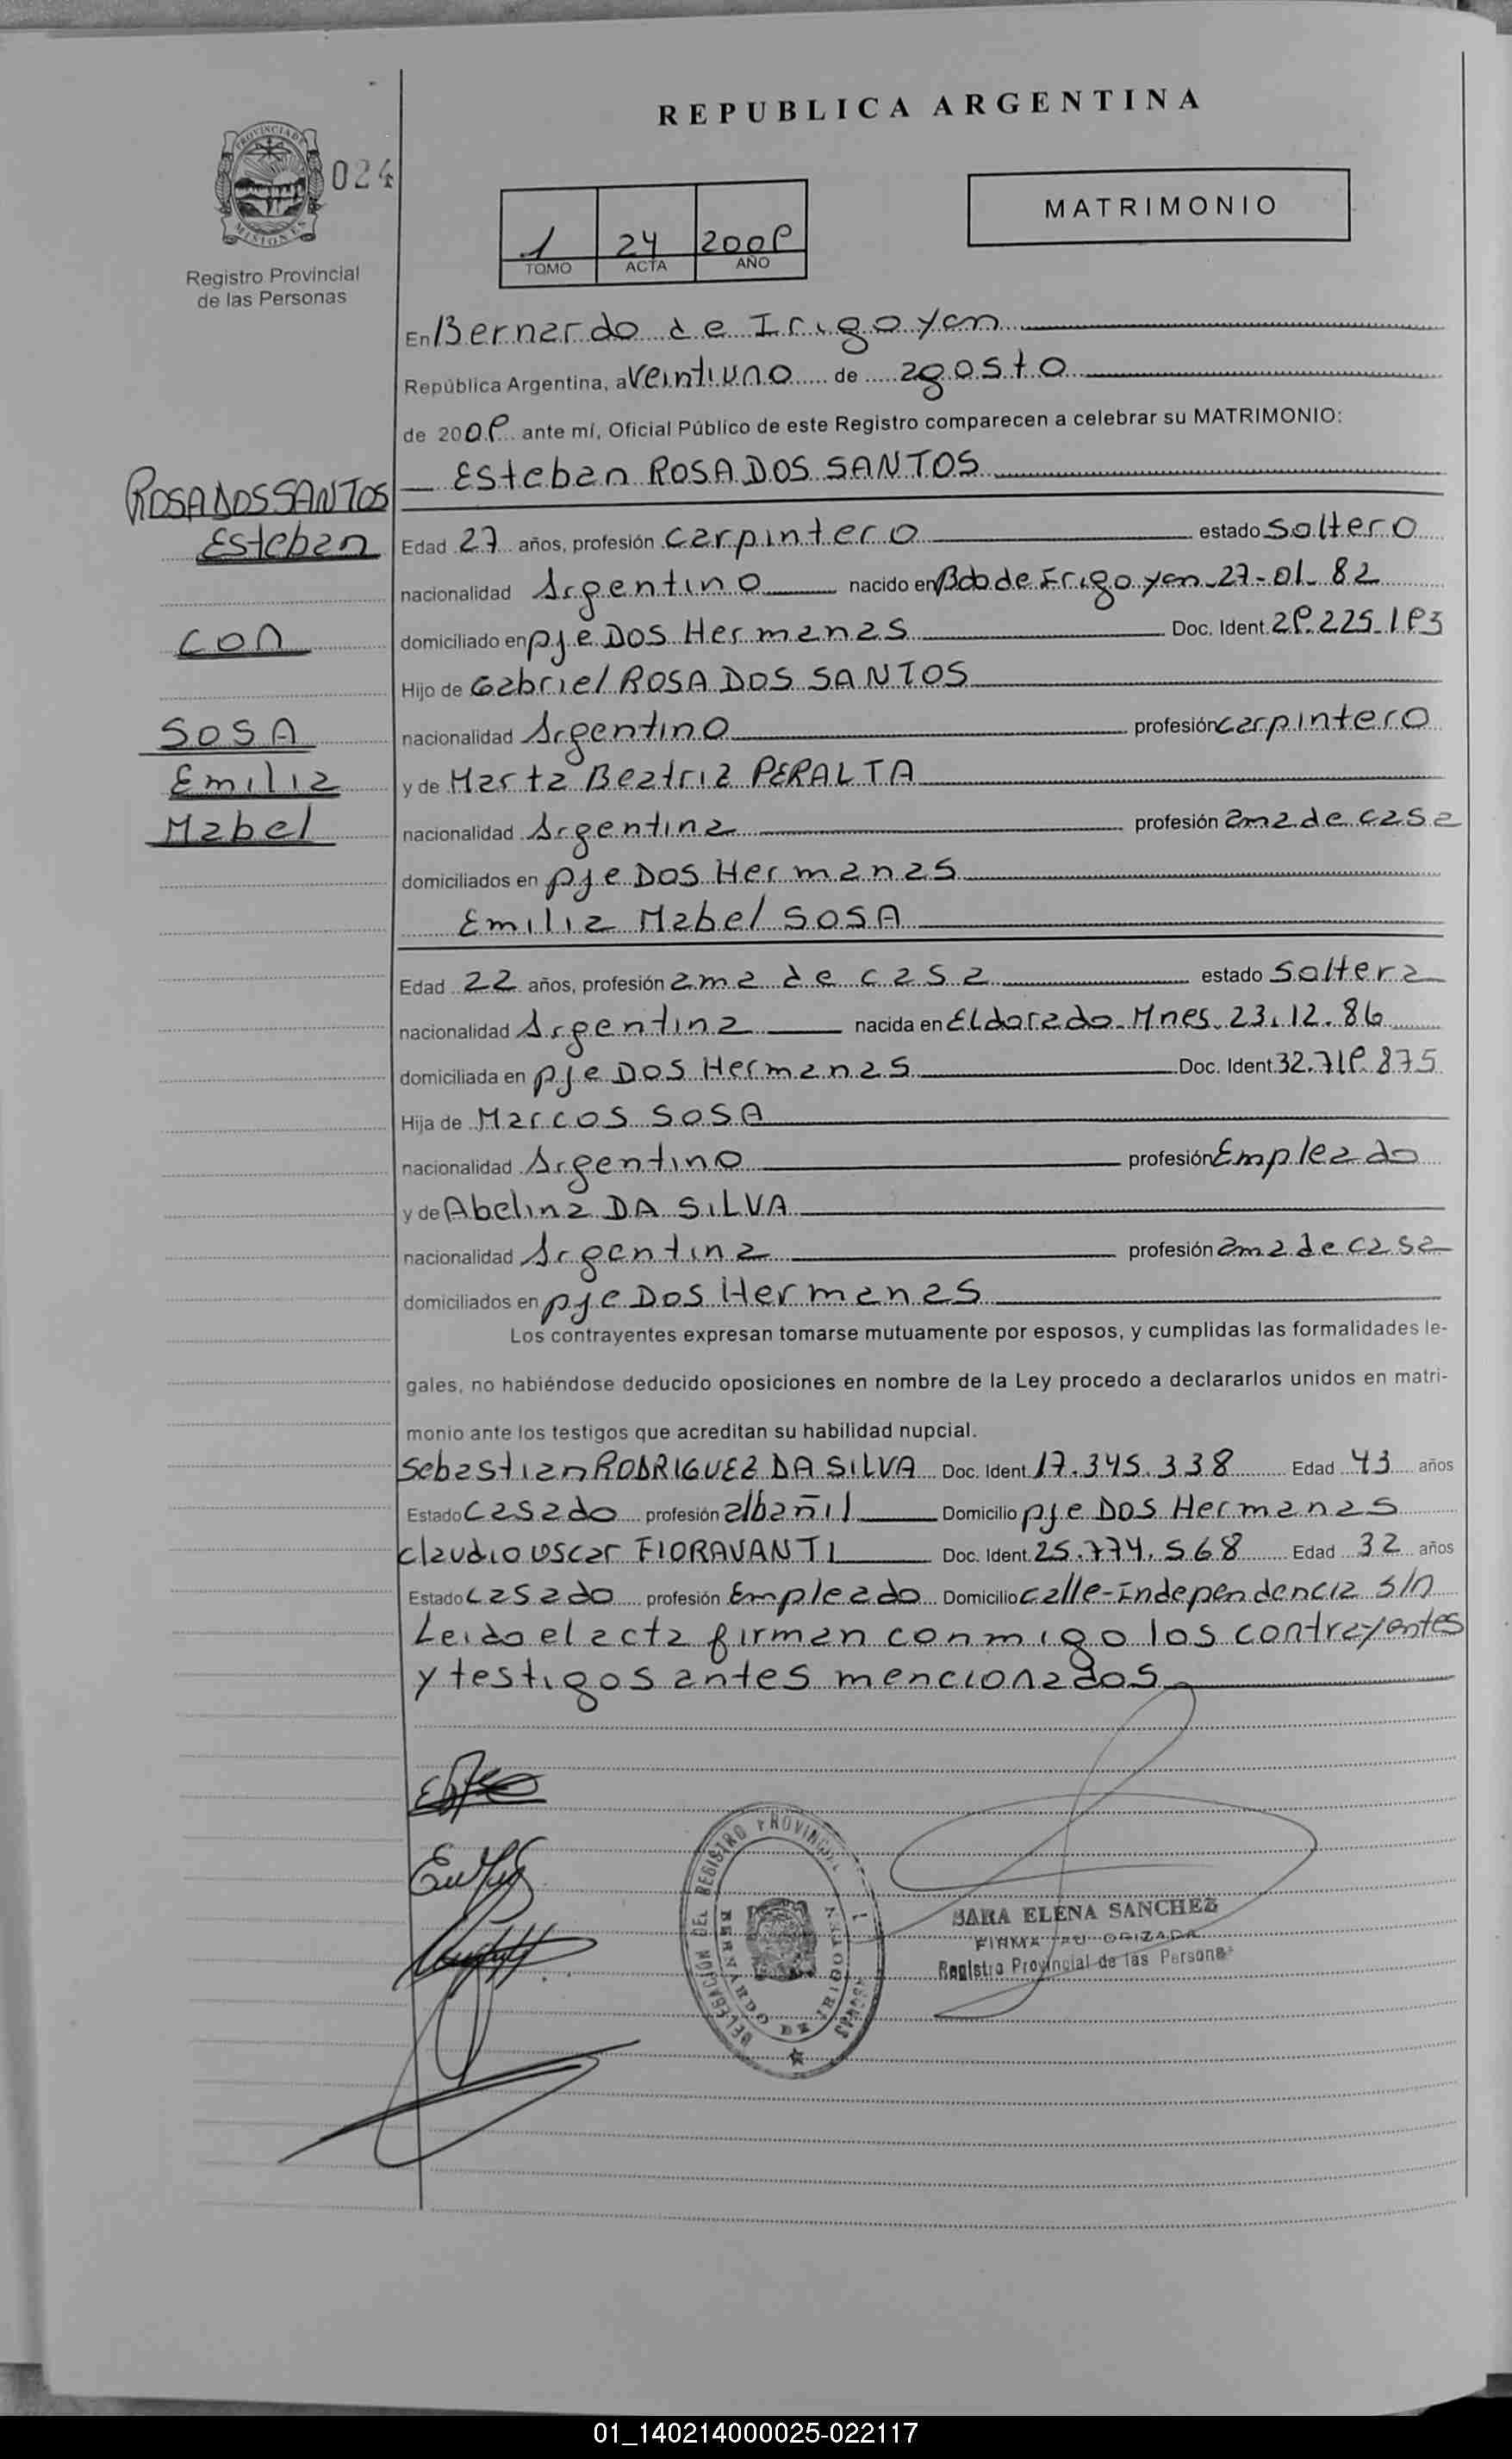 REPUBLICA ARGENTINA
PROVINCIA DE
MISIONES
024
Registro Provincial
de las Personas
1 24 2009
TOMO ACTA AÑO
MATRIMONIO
En Bernardo de Irigoyen
República Argentina, a veintiuno de agosto
de 2009 ante mí, Oficial Público de este Registro comparecen a celebrar su MATRIMONIO:
ROSA DOS SANTOS
Esteban
con
SOSA
Emilia
Mabel
Esteban ROSA DOS SANTOS
Edad 27 años, profesión carpintero estado soltero
nacionalidad Argentino nacido en Bdo de Irigoyen 27-01-82
domiciliado en pje DOS Hermanas Doc. Ident. 29.225.193
Hijo de Gabriel ROSA DOS SANTOS
nacionalidad Argentino profesión carpintero
y de Marta Beatriz PERALTA
nacionalidad Argentina profesión ama de casa
domiciliados en pje DOS Hermanas
Emilia Mabel SOSA
Edad 22 años, profesión ama de casa estado soltera
nacionalidad Argentina nacida en Eldorado-Mnes. 23.12.86
domiciliada en pje DOS Hermanas Doc. Ident. 32.719.875
Hija de Marcos SOSA
nacionalidad Argentino profesión Empleado
y de Abelina DA SILVA
nacionalidad Argentina profesión ama de casa
domiciliados en pje Dos Hermanas
Los contrayentes expresan tomarse mutuamente por esposos, y cumplidas las formalidades le-
gales, no habiéndose deducido oposiciones en nombre de la Ley procedo a declararlos unidos en matri-
monio ante los testigos que acreditan su habilidad nupcial.
Sebastian RODRIGUEZ DA SILVA Doc. Ident. 17.345.338 Edad 43 años
Estado casado profesión albañil Domicilio pje DOS Hermanas
Claudio Oscar FIORAVANTI Doc. Ident. 25.774.568 Edad 32 años
Estado casado profesión Empleado Domicilio calle-Independencia S/n
Leido el acta firman conmigo los contrayentes
y testigos antes mencionados
DELEGACION DEL REGISTRO PROVINCIAL
BERNARDO DE IRIGOYEN
SARA ELENA SANCHEZ
FIRMA AUTORIZADA
Registro Provincial de las Personas
01_140214000025-022117